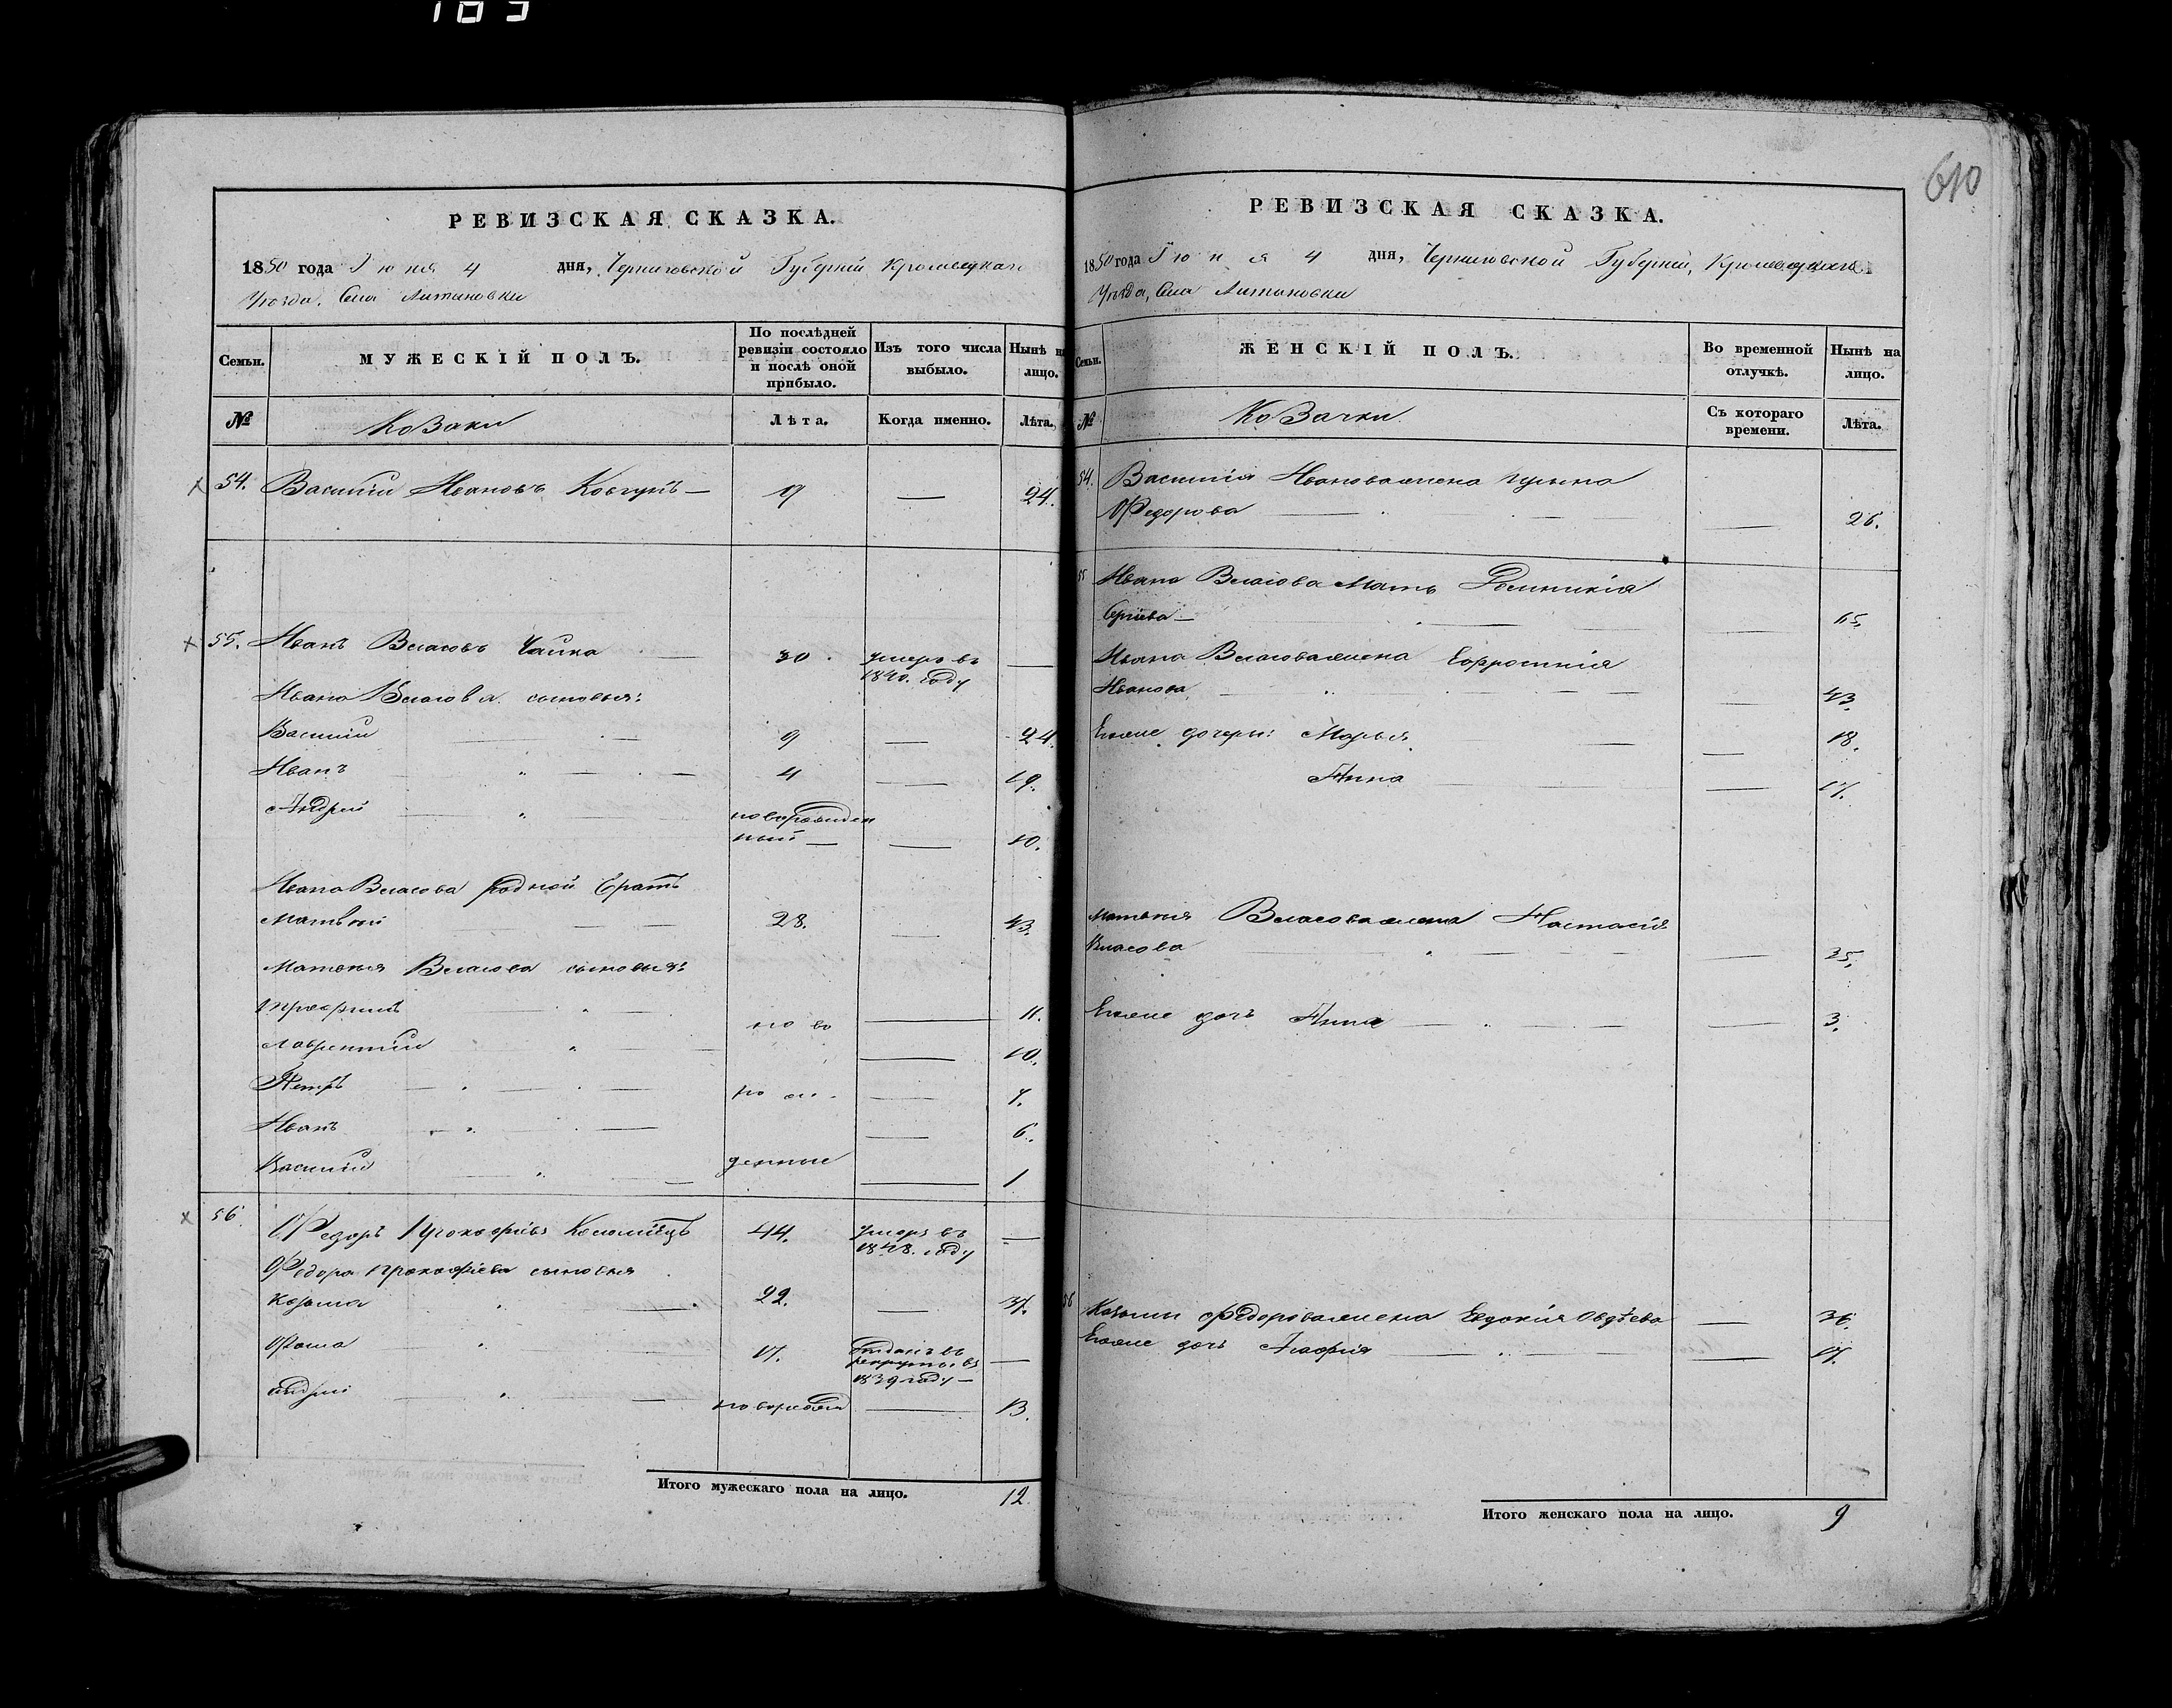 185
610
РЕВИЗСКАЯ СКАЗКА.
1850 года Іюня 4 дня, Черниговской Губерніи, Кролевецкаго
Уѣзда, Села Литвиновки
Семьи.
МУЖЕСКІЙ ПОЛЪ.
По послѣдней ревизіи состояло и послѣ оной прибыло.
Изъ того числа выбыло.
Нынѣ на лицо.
№
Козаки
Лѣта.
Когда именно.
Лѣта.
54. Василій Ивановъ Ковтунъ — 9 — 24.
55. Иванъ Власовъ Чайка — 30. умеръ въ 1840. году —
Ивана Власова сыновья:
Василій — 9 — 24.
Иванъ — 4 — 19.
Андрей — новорожден
ный — — 10.
Ивана Власова родной братъ
Матвѣй — 28. — 43.
Матвѣя Власова сыновья:
Трофимъ — — 11.
но во
Лаврентій — — 10.
Петръ — — 7.
Иванъ — — 6.
Василій — денные — 1
56. Федоръ Прокофьевъ Коломіецъ 44. умеръ въ 1848. году —
Федора Прокофіева сыновья
Козьма 22. — 37.
Фома 17. отданъ въ рекруты въ 1839 году — —
Андрей — новорожден — 13.
Итого мужескаго пола на лицо. 12.
РЕВИЗСКАЯ СКАЗКА.
1850 года Іюня 4 дня, Черниговской Губерніи, Кролевецкаго
Уѣзда, Села Литвиновки
Семьи.
ЖЕНСКІЙ ПОЛЪ.
Во временной отлучкѣ.
Нынѣ на лицо.
№
Козачки
Съ котораго времени.
Лѣта.
54. Василія Иванова жена
Федорова — — 26.
55 Ивана Власова мать
Сергіева — — 65.
Ивана Власова жена Ефросинія
Иванова — — 43.
Ею же дочери: Марья — — 18.
Анна — 17.
Матвѣя Власова жена Настасія
Власова — — 35.
Ею же дочь Анна — — 3.
56 Козьмы Федорова жена Евдокія Овдѣева — 36.
Ею же дочь Агафія — — 17.
Итого женскаго пола на лицо. 9